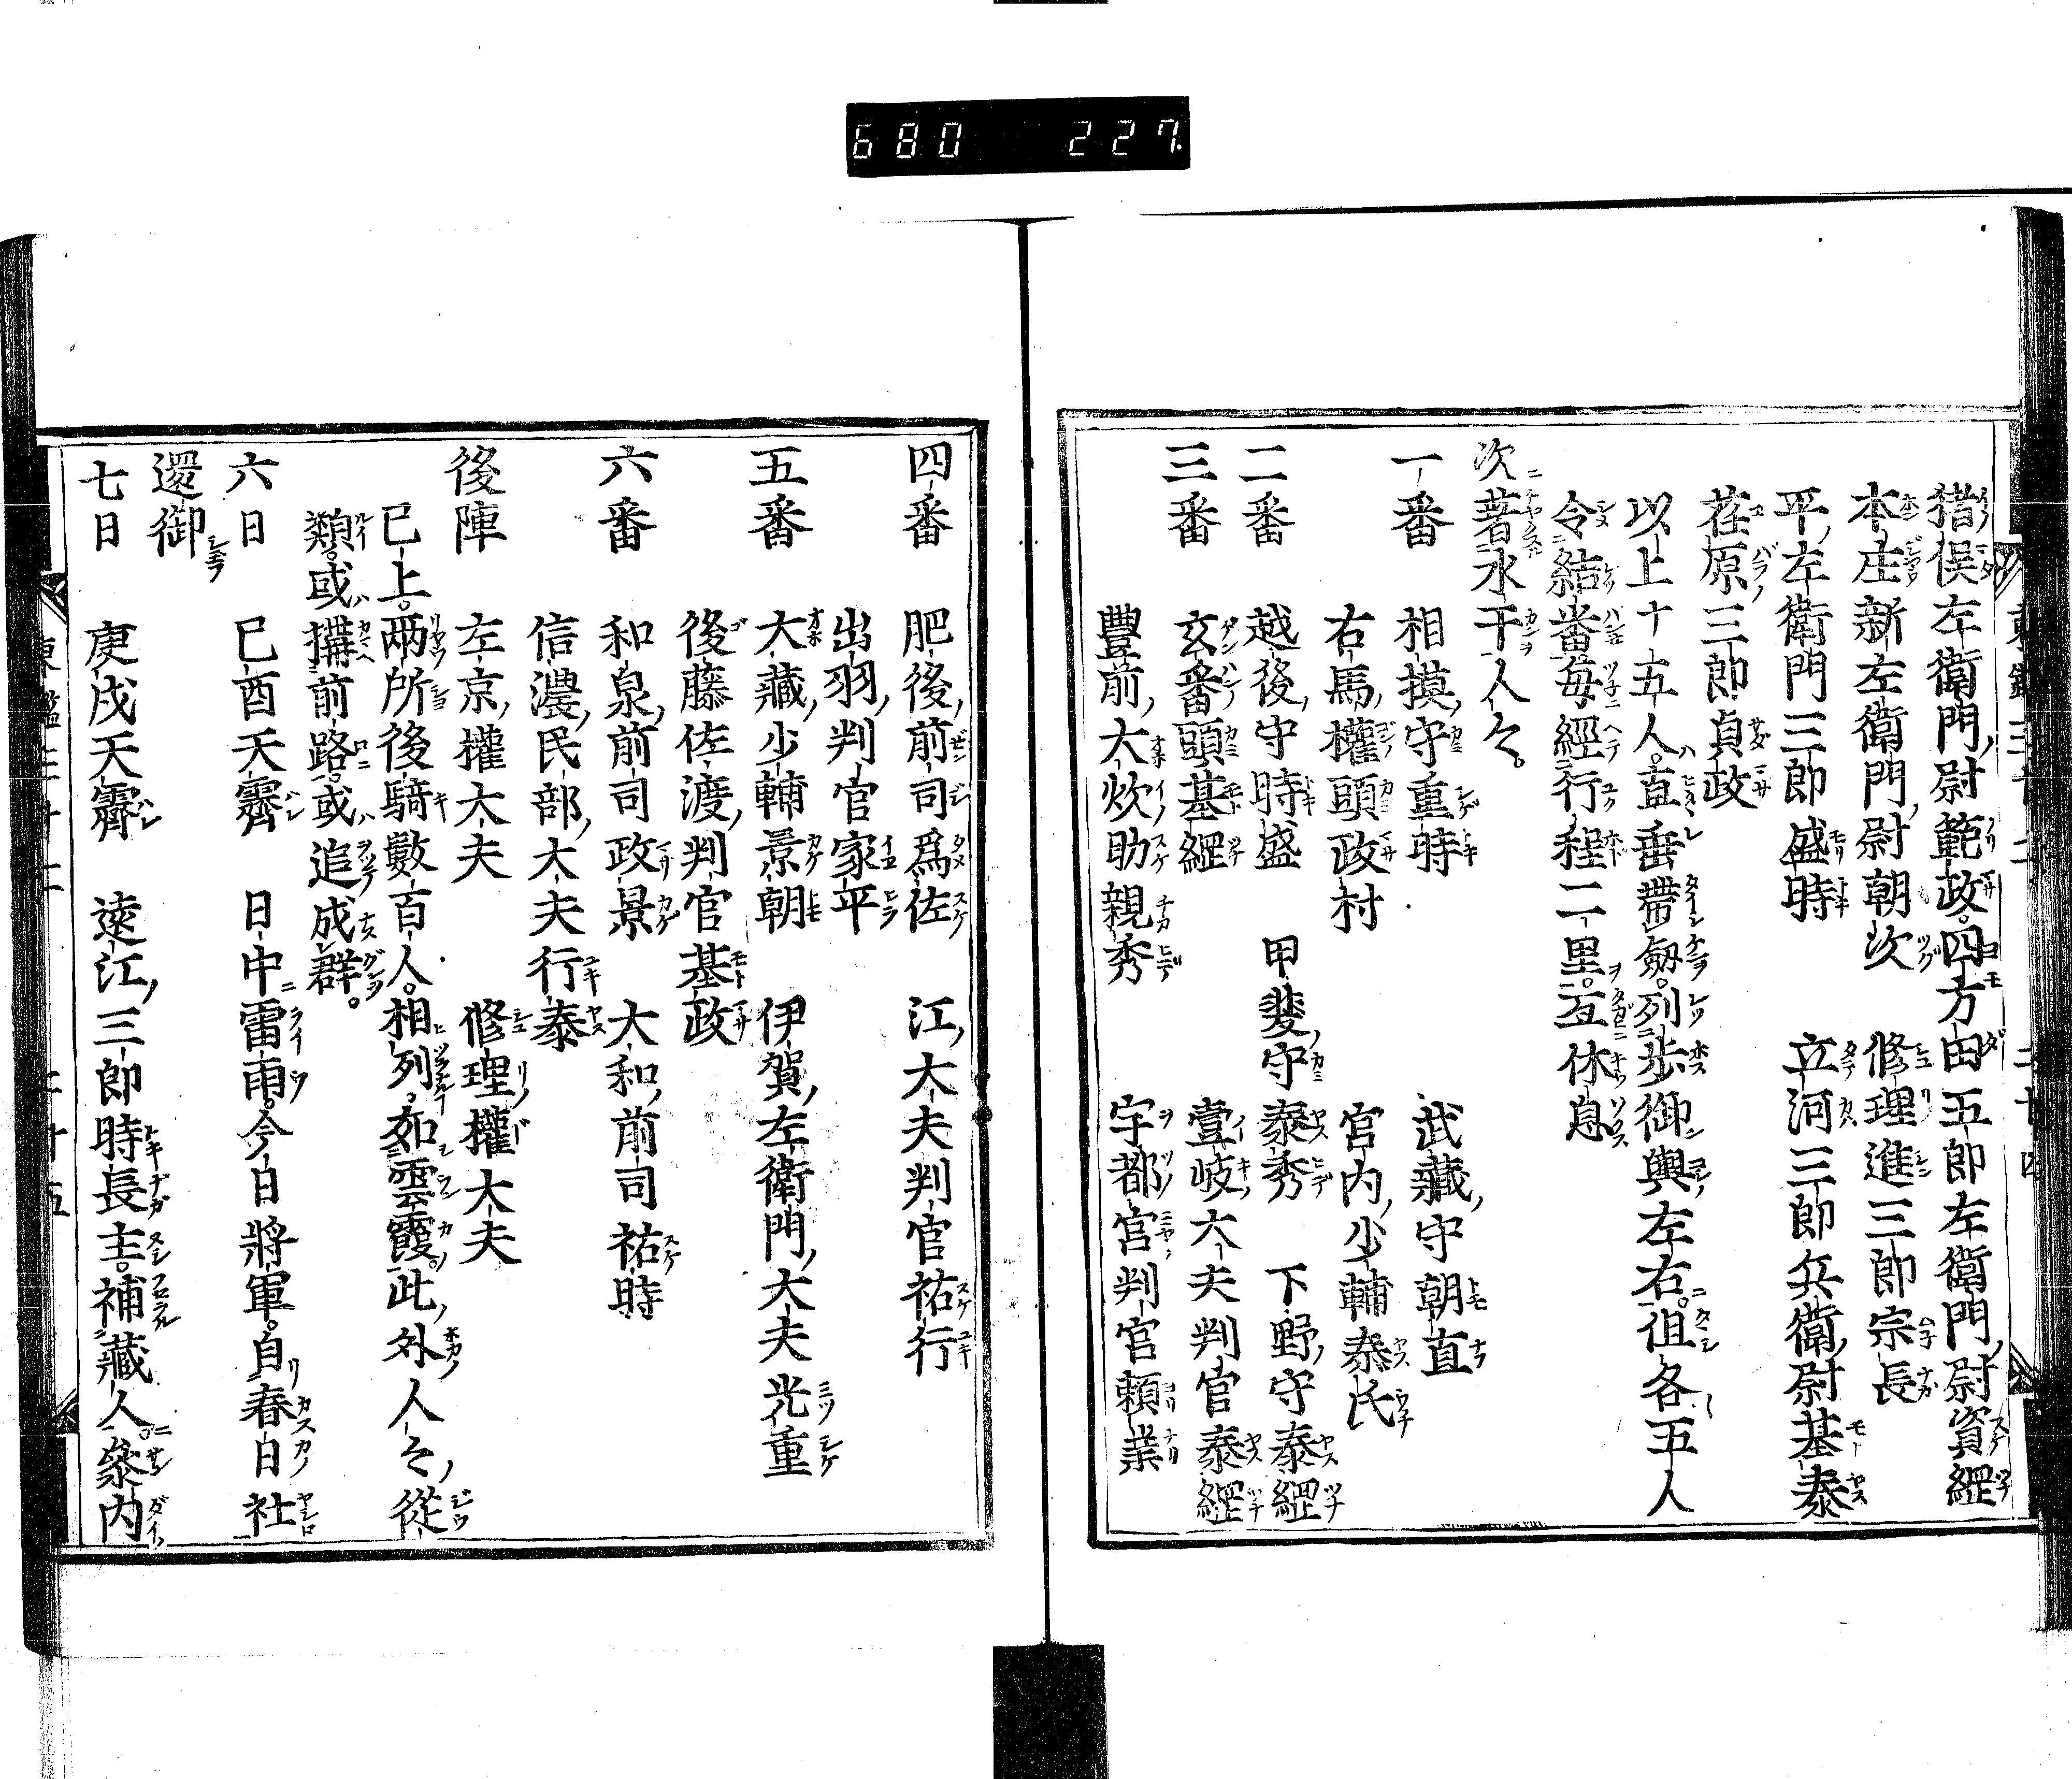 680 227.
猪俣左衛門尉範政。四方田五郎左衛門尉資經
本庄新左衛門尉朝次 修理進三郎宗長
平左衛門三郎盛時 立河三郎兵衛尉基泰
荏原三郎貞政
以上十五人。直垂帶劔。列歩御輿左右。徂各五人
令結番毎經行程二里。互休息
次著水干人々。
一番 相摸守重時 武藏守朝直
右馬權頭政村 宮内少輔泰氏
二番 越後守時盛 甲斐守泰秀 下野守泰經
三番 玄番頭基經 壹岐大夫判官泰經
豐前大炊助親秀 宇都宮判官頼業
四番 肥後前司爲佐 江大夫判官祐行
出羽判官家平
五番 大藏少輔景朝 伊賀左衛門大夫光重
後藤佐渡判官基政
六番 和泉前司政景 大和前司祐時
信濃民部大夫行泰
後陣 左京權大夫 修理權大夫
已上。兩所後騎數百人。相列。如雲霞。此外人々從
類。或搆前路。或追成群。
六日 已酉天霽 日中雷雨。今日將軍。自春日社
還御
七日 庚戌天霽 遠江三郎時長主。補藏人。參内